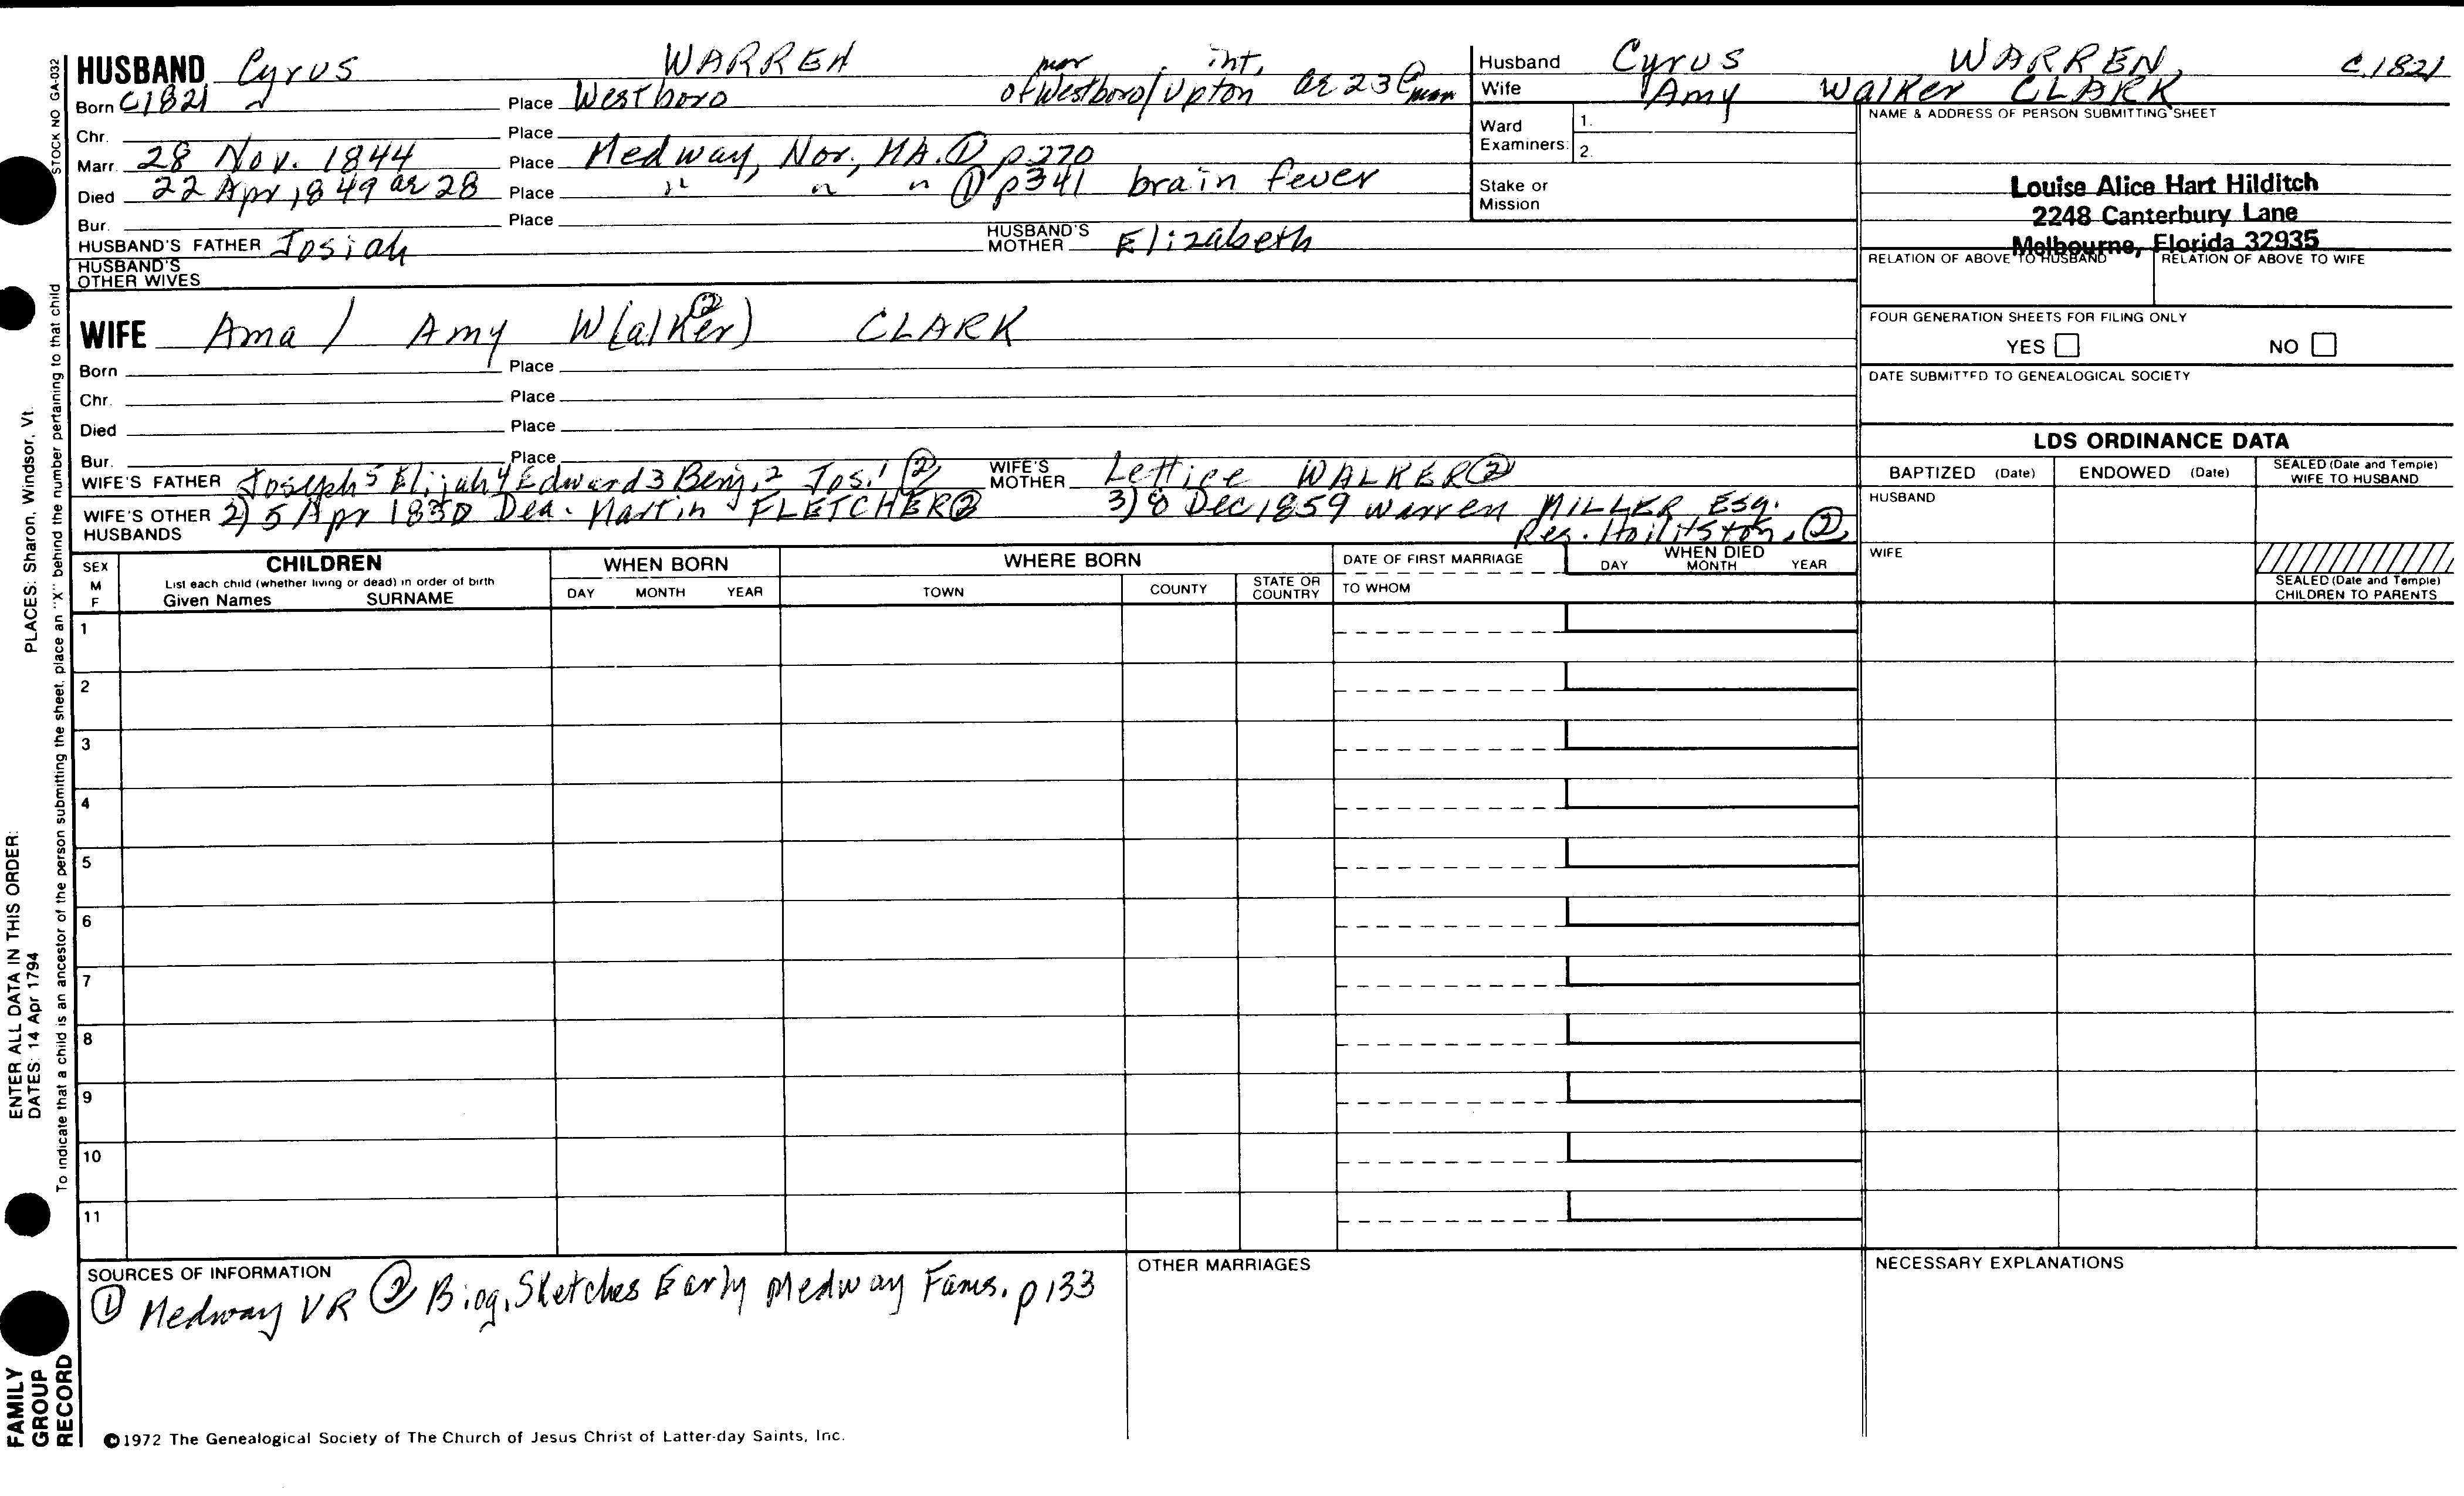 HUSBAND Cyrus WARREN mar int,
Born C1821 Place Westboro of Westboro/Upton ae 23 @ mar
Chr. Place
Marr. 28 Nov. 1844 Place Medway, Nor., MA. ① p270
Died 22 Apr 1849 ae 28 Place " " " ① p341 brain fever
Bur. Place
HUSBAND'S FATHER Josiah HUSBAND'S MOTHER Elizabeth
HUSBAND'S OTHER WIVES
WIFE Ama / Amy W(alker) ② CLARK
Born Place
Chr. Place
Died Place
Bur. Place
WIFE'S FATHER Joseph 5 Elijah 4 Edward 3 Benj. 2 Jos. 1 ② WIFE'S MOTHER Lettice WALKER ②
WIFE'S OTHER HUSBANDS 2) 5 Apr 1850 Dea. Martin FLETCHER ② 3) 8 Dec 1859 Warren MILLER Esq.
Res. ②
Husband Cyrus WARREN C.1821
Wife Amy Walker CLARK
Ward Examiners: 1.
2.
Stake or Mission
NAME & ADDRESS OF PERSON SUBMITTING SHEET
Louise Alice Hart Hilditch
2248 Canterbury Lane
Melbourne, Florida 32935
RELATION OF ABOVE TO HUSBAND RELATION OF ABOVE TO WIFE
FOUR GENERATION SHEETS FOR FILING ONLY
YES NO
DATE SUBMITTED TO GENEALOGICAL SOCIETY
LDS ORDINANCE DATA
BAPTIZED (Date) ENDOWED (Date) SEALED (Date and Temple) WIFE TO HUSBAND
HUSBAND
WIFE
SEALED (Date and Temple) CHILDREN TO PARENTS
SEX M F CHILDREN WHEN BORN WHERE BORN DATE OF FIRST MARRIAGE WHEN DIED
List each child (whether living or dead) in order of birth
Given Names SURNAME DAY MONTH YEAR TOWN COUNTY STATE OR COUNTRY TO WHOM DAY MONTH YEAR
1
2
3
4
5
6
7
8
9
10
11
SOURCES OF INFORMATION OTHER MARRIAGES NECESSARY EXPLANATIONS
① Medway VR ② Biog. Sketches Early Medway Fams. p133
©1972 The Genealogical Society of The Church of Jesus Christ of Latter-day Saints, Inc.
STOCK NO GA-032
To indicate that a child is an ancestor of the person submitting the sheet, place an "X" behind the number pertaining to that child
ENTER ALL DATA IN THIS ORDER:
DATES: 14 Apr 1794
PLACES: Sharon, Windsor, Vt.
FAMILY
GROUP
RECORD